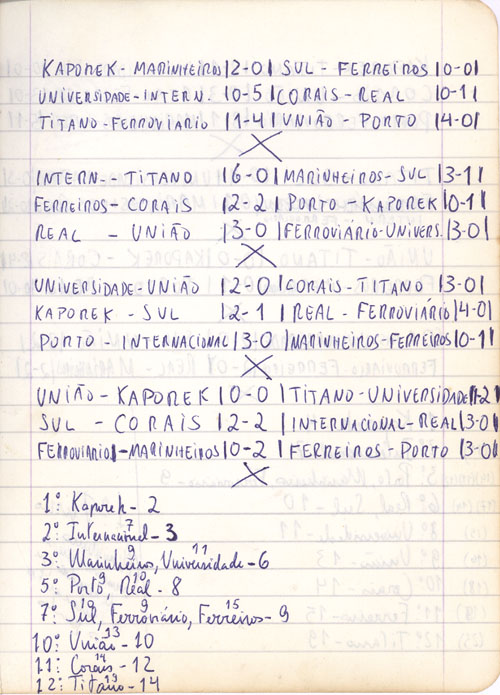 KAPOREK - MARINHEIROS |2-0| SUL - FERREIROS |0-0|
UNIVERSIDADE - INTERN. |0-5| CORAIS - REAL |0-1|
TITANO - FERROVIARIO |1-4| UNIÃO - PORTO |4-0|
INTERN. - TITANO |6-0| MARINHEIROS - SUL |3-1|
FERREIROS - CORAIS |2-2| PORTO - KAPOREK |0-1|
REAL - UNIÃO |3-0| FERROVIÁRIO - UNIVERS. |3-0|
UNIVERSIDADE - UNIÃO |2-0| CORAIS - TITANO |3-0|
KAPOREK - SUL |2-1| REAL - FERROVIÁRIO |4-0|
PORTO - INTERNACIONAL |3-0| MARINHEIROS - FERREIROS |0-1|
UNIÃO - KAPOREK |0-0| TITANO - UNIVERSIDADE |1-2|
SUL - CORAIS |2-2| INTERNACIONAL - REAL |3-0|
FERROVIARIO - MARINHEIROS |0-2| FERREIROS - PORTO |3-0|
1º: Kaporek - 2
2º: Internacional 7 - 3
3º: Marinheiros 9, Universidade 11 - 6
5º: Porto 9, Real 10 - 8
7º: Sul, Ferroviário 9, Ferreiros 15 - 9
10º: União 13 - 10
11º: Corais 14 - 12
12º: Titano - 14